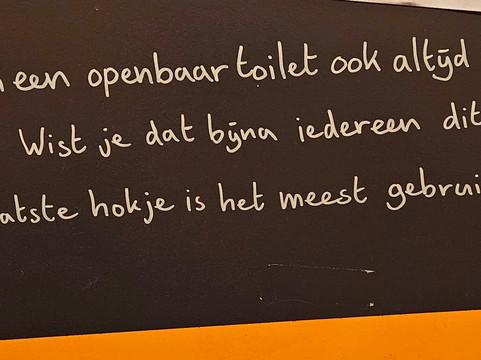 een openbaar toilet ook altijd
Wist je dat bijna iedereen dit
atste hokje is het meest gebrui